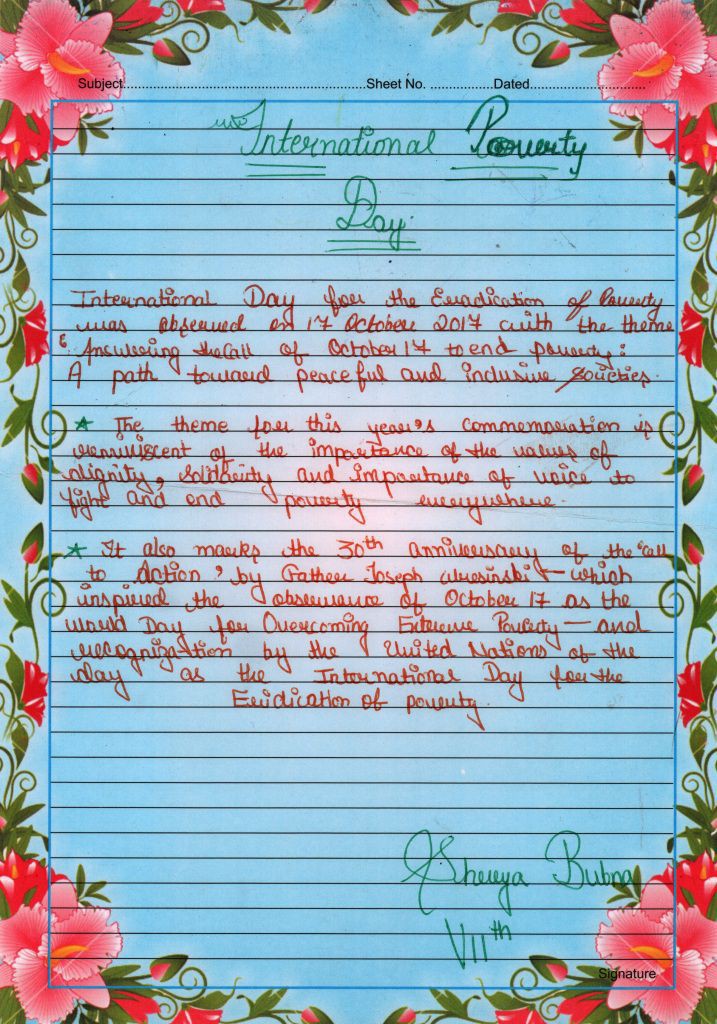 Subject..........................................................Sheet No. ................Dated.............................
International Poverty
Day.
International Day for the Eradication of Poverty
was observed on 17 October 2017 with the theme
" Answering the Call of October 17 to end poverty:
A path toward peaceful and inclusive societies.
★ The theme for this year's commemoration is
reminiscent of the importance of the values of
dignity, solidarity and importance of voice to
fight and end poverty everywhere.
★ It also marks the 30th anniversary of the 'Call
to Action' by Father Joseph Wresinski — which
inspired the observance of October 17 as the
World Day for Overcoming Extreme Poverty — and
recognization by the United Nations of the
day as the International Day for the
Eridication of poverty.
Shreya Bubna
VIIth
Signature